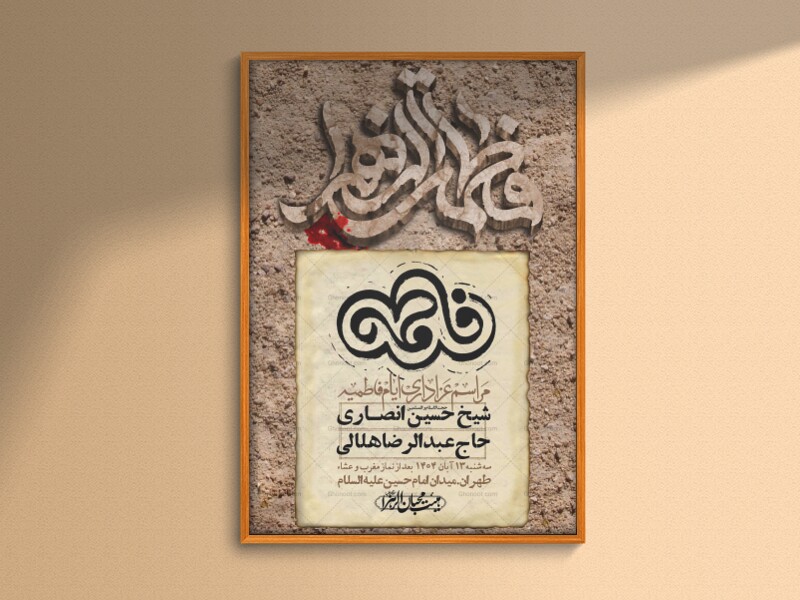 فاطمة الزهرا
فاطمه
مراسم عزاداری ایام فاطمیه
شیخ حسین انصاری
حاج عبدالرضا هلالی
سه شنبه ۱۳ آبان ۱۴۰۴ بعد از نماز مغرب و عشاء
طهران.میدان امام حسین علیه السلام
هیئت محبان الزهرا